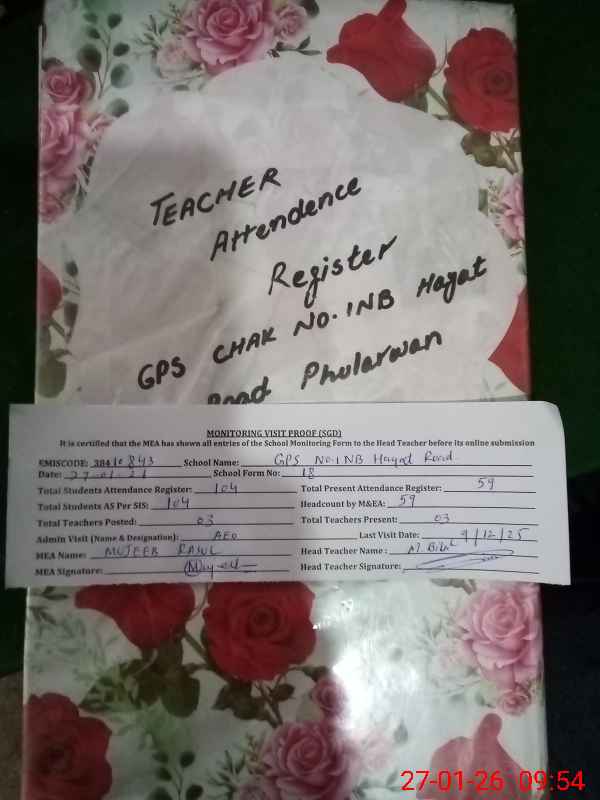 TEACHER
Attendence
Register
GPS CHAK NO.1NB Hayat
Road Phularwan
MONITORING VISIT PROOF (SGD)
It is certified that the MEA has shown all entries of the School Monitoring Form to the Head Teacher before its online submission
EMISCODE: 38410843 School Name: GPS No.1NB Hayat Road
Date: 27-01-26 School Form No: 18
Total Students Attendance Register: 104 Total Present Attendance Register: 59
Total Students AS Per SIS: 104 Headcount by M&EA: 59
Total Teachers Posted: 03 Total Teachers Present: 03
Admin Visit (Name & Designation): AEO Last Visit Date: 9/12/25
MEA Name: MUJEEB Head Teacher Name: M. Bilal
MEA Signature: Head Teacher Signature:
27-01-26 09:54